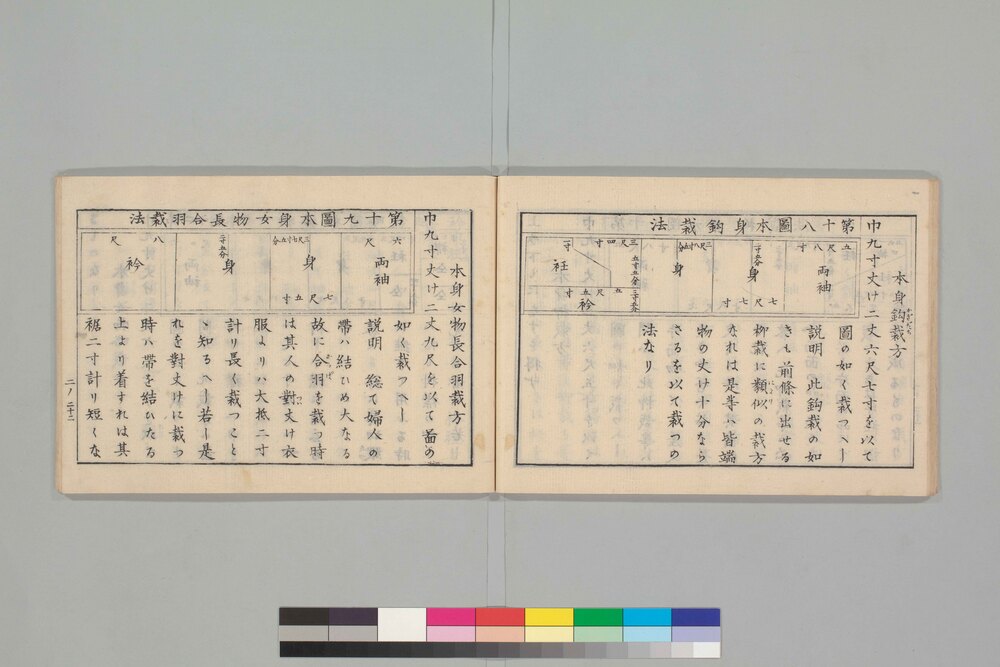 本身鈎裁方
巾九寸丈け二丈六尺七寸を以て
第十八圖本身鈎裁法
五尺八寸
両袖
二寸五分
身
七尺七寸
三尺八寸五分
身
三尺四寸
五寸五分
二寸五分
一寸
衽
五尺五寸
衿
圖の如く裁つヘし
説明 此鈎裁の如
きも前條に出せる
柳裁に類似の裁方
なれは是等ハ皆端
物の丈け十分なら
さるを以て裁つの
法なり
本身女物長合羽裁方
巾九寸丈け二丈九尺を以て圖の
第十九圖本身女物長合羽裁法
六尺
両袖
三尺七寸五分
身
七尺五寸
二寸五分
身
八尺
衿
如く裁つヘし
説明 総て婦人の
帶ハ結ひめ大なる
故に合羽を裁つ時
は其人の對丈け衣
服よりハ大抵二寸
計り長く裁つこと
ゝ知るヘし若し是
れを對丈けに裁つ
時ハ帶を結ひたる
上より着すれは其
裾二寸計り短くな
二ノ二十二